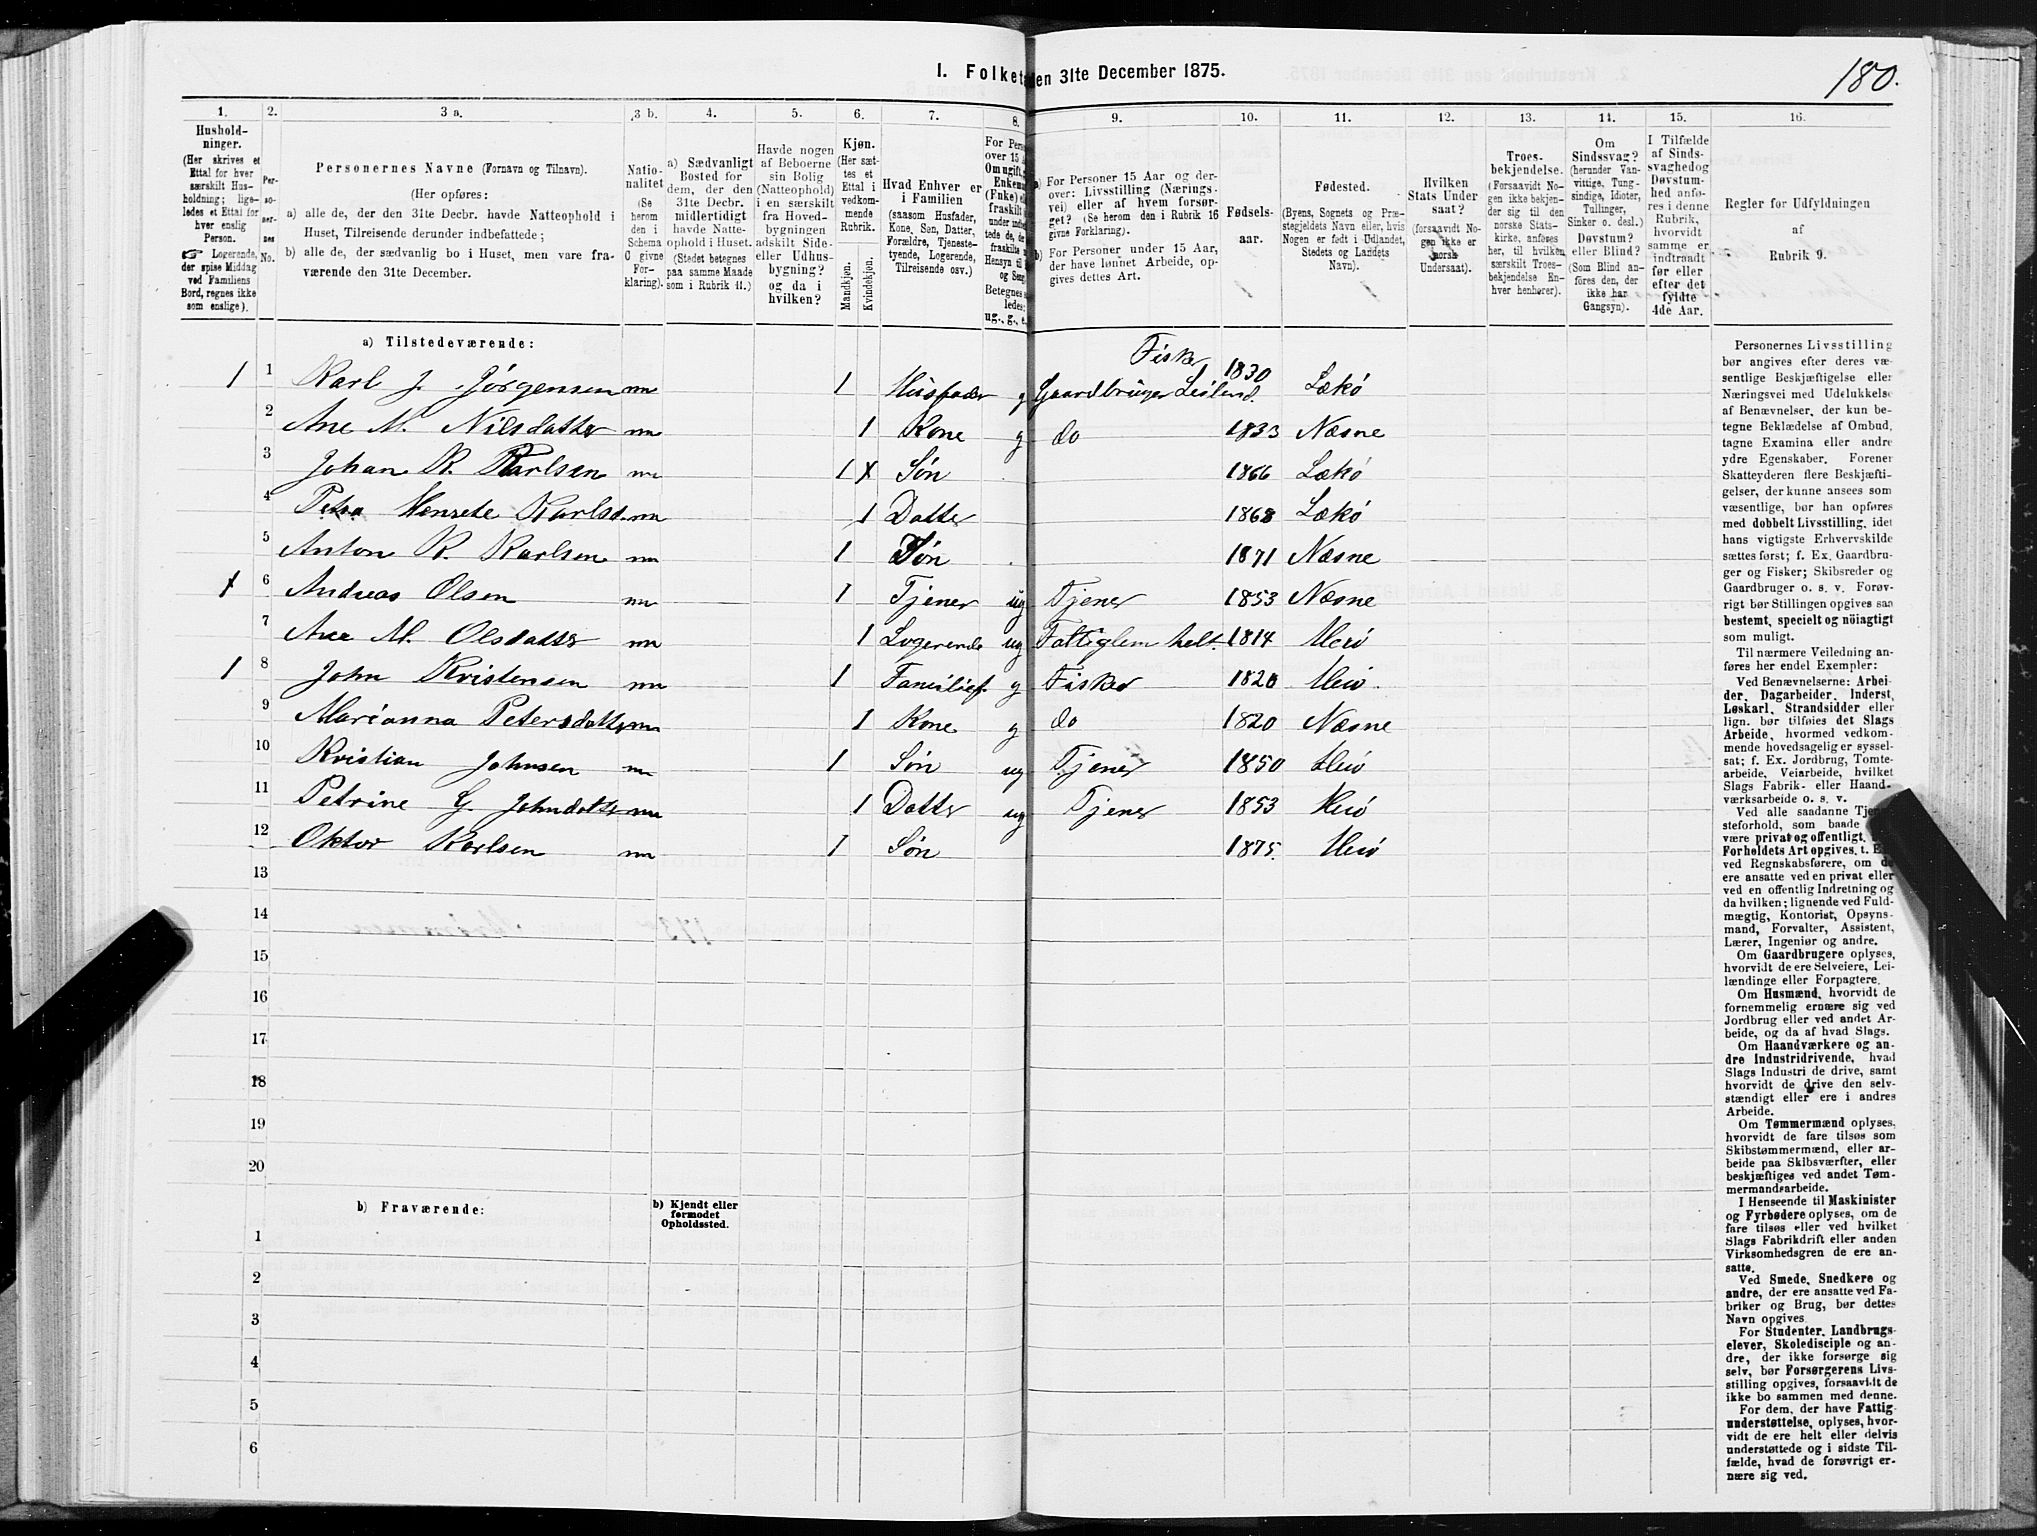 I. Folketa
den 31te December 1875.
180.
1.
2.
3 a.
3 b.
4.
5.
6.
7.
8.
9.
10.
11.
12.
13.
14.
15.
16.
Hushold-
ninger.
(Her skrives et
Ettal for hver
særskilt Hus-
holdning; lige-
ledes et Ettal for
hver enslig
Person.
☞ Logerende,
der spise Middag
ved Familiens
Bord, regnes ikke
som enslige).
Per-
so-
ner-
nes
No.
Personernes Navne (Fornavn og Tilnavn).
(Her opføres:
a) alle de, der den 31te Decbr. havde Natteophold i
Huset, Tilreisende derunder indbefattede;
b) alle de, der sædvanlig bo i Huset, men vare fra-
værende den 31te December.
Natio-
nalitet
(Se
herom
den i
Schema
C givne
For-
klaring).
a) Sædvanligt
Bosted for
dem, der den
31te Decbr.
midlertidigt
havde Natte-
ophold i Huset.
(Stedet betegnes
paa samme Maade
som i Rubrik 11.)
Havde nogen
af Beboerne
sin Bolig
(Natteophold)
i en særskilt
fra Hoved-
bygningen
adskilt Side-
eller Udhus-
bygning?
og da i
hvilken?
Kjøn.
(Her sæt-
tes et
Ettal i
vedkom-
mende
Rubrik.
Mandkjøn.
Kvindekjøn.
Hvad Enhver er
i Familien
(saasom Husfader,
Kone, Søn, Datter,
Forældre, Tjeneste-
tyende, Logerende,
Tilreisende osv.)
For Perso
over 15 A
Om ugift, g
Enkema
(Enke) el
fraskilt
ug., g., e.,
a) For Personer 15 Aar og der-
over: Livsstilling (Nærings-
vei) eller af hvem forsør-
get? (Se herom den i Rubrik 16
givne Forklaring).
b) For Personer under 15 Aar,
der have lønnet Arbeide, op-
gives dettes Art.
Fødsels-
aar.
Fødested.
(Byens, Sognets og Præ-
stegjeldets Navn eller, hvis
Nogen er født i Udlandet,
Stedets og Landets
Navn).
Hvilken
Stats Under
saat?
(forsaavidt No-
gen ikke er
norsk
Undersaat).
Troes-
bekjendelse.
(Forsaavidt No-
gen ikke bekjen-
der sig til den
norske Stats-
kirke, anføres
her, til hvilken
særskilt Troes-
bekjendelse En-
hver henhører).
Om
Sindssvag?
(herunder Van-
vittige, Tung-
sindige, Idioter,
Tullinger,
Sinker o. desl.)
Døvstum?
eller Blind?
(Som Blind an-
føres den, der
ikke har
Gangsyn).
I Tilfælde
af Sinds-
svaghed og
Døvstum-
hed anfø-
res i denne
Rubrik,
hvorvidt
samme er
indtraadt
før eller
efter det
fyldte
4de Aar.
Regler for Udfyldningen
af
Rubrik 9.
a) Tilstedeværende:
1 1 Karl J. Jörgensen nn 1 Husfader g Fisker Gaardbruger Leilend. 1830 Lækö
2 Ane M. Nilsdatter nn 1 Kone g do 1833 Næsne
3 Johan K. Karlsen nn 1 x Sön 1866 Lækö
4 Petra Hensete Karlsd. nn 1 Datter 1868 Lækö
5 Anton K. Karlsen nn 1 Sön 1871 Næsne
x 6 Andreas Olsen nn 1 Tjener ug Tjener 1853 Næsne
7 Ane M. Olsdatter nn 1 Logerende ug Fattiglem helt. 1814 Herö
1 8 John Kristensen nn 1 Familief. g Fisker 1820 Herö
9 Marianna Petersdatter nn 1 Kone g do 1820 Næsne
10 Kristian Johnsen nn 1 Sön ug Tjener 1850 Herö
11 Petrine G Johndatter nn 1 Datter ug Tjener 1853 Herö
12 Oktav Karlsen nn 1 Sön 1875. Herö
13
14
15
16
17
18
19
20
b) Fraværende:
b) Kjendt eller
formodet
Opholdssted.
1
2
3
4
5
6
Personernes Livsstilling
bør angives efter deres væ-
sentlige Beskjæftigelse eller
Næringsvei med Udelukkelse
af Benævnelser, der kun be-
tegne Beklædelse af Ombud,
tagne Examina eller andre
ydre Egenskaber. Forener
Skatteyderen flere Beskjæfti-
gelser, der kunne ansees som
væsentlige, bør han opføres
med dobbelt Livsstilling, idet
hans vigtigste Erhvervskilde
sættes først; f. Ex. Gaardbru-
ger og Fisker; Skibsreder og
Gaardbruger o. s. v. Forøv-
rigt bør Stillingen opgives saa
bestemt, specielt og nöiagtigt
som muligt.
Til nærmere Veiledning an-
føres her endel Exempler:
Ved Benævnelserne: Arbei-
der, Dagarbeider, Inderst,
Løskarl, Strandsidder eller
lign. bør tilføies det Slags
Arbeide, hvormed vedkom-
mende hovedsagelig er syssel-
sat; f. Ex. Jordbrug, Tomte-
arbeide, Veiarbeide, hvilket
Slags Fabrik- eller Haand-
værksarbeide o. s. v.
Ved alle saadanne Tjene-
steforhold, som baade
være privat og offentligt,
Forholdets Art opgives, t. E
ved Regnskabsførere, om de
ere ansatte ved en privat eller
ved en offentlig Indretning og
da hvilken; lignende ved Fuld-
mægtig, Kontorist, Opsyns-
mand, Forvalter, Assistent,
Lærer, Ingeniør og andre.
Om Gaardbrugere oplyses,
hvorvidt de ere Selveiere, Lei-
lændinge eller Forpagtere.
Om Husmænd, hvorvidt de
fornemmelig ernære sig ved
Jordbrug eller ved andet Ar-
beide, og da af hvad Slags.
Om Haandværkere og an-
dre Industridrivende, hvad
Slags Industri de drive, samt
hvorvidt de drive den selv-
stændigt eller ere i andres
Arbeide.
Om Tømmermænd oplyses,
hvorvidt de fare tilsøs som
Skibstømmermænd, eller ar-
beide paa Skibsværfter, eller
beskjæftiges ved andet Tøm-
mermandsarbeide.
I Henseende til Maskinister
og Fyrbødere oplyses, om de
fare tilsøs eller ved hvilket
Slags Fabrikdrift eller anden
Virksomhedsgren de ere an-
satte.
Ved Smede, Snedkere og
andre, der ere ansatte ved Fa-
briker og Brug, bør dettes
Navn opgives.
For Studenter, Landbrugs-
elever, Skoledisciple og an-
dre, der ikke forsørge sig
selv, bør Forsørgerens Livs-
stilling opgives, forsaavidt de
ikke bo sammen med denne.
For dem, der have Fattig-
understøttelse, oplyses, hvor-
vidt de ere helt eller delvis
understøttede og i sidste Til-
fælde, hvad de forøvrigt er-
nære sig ved.